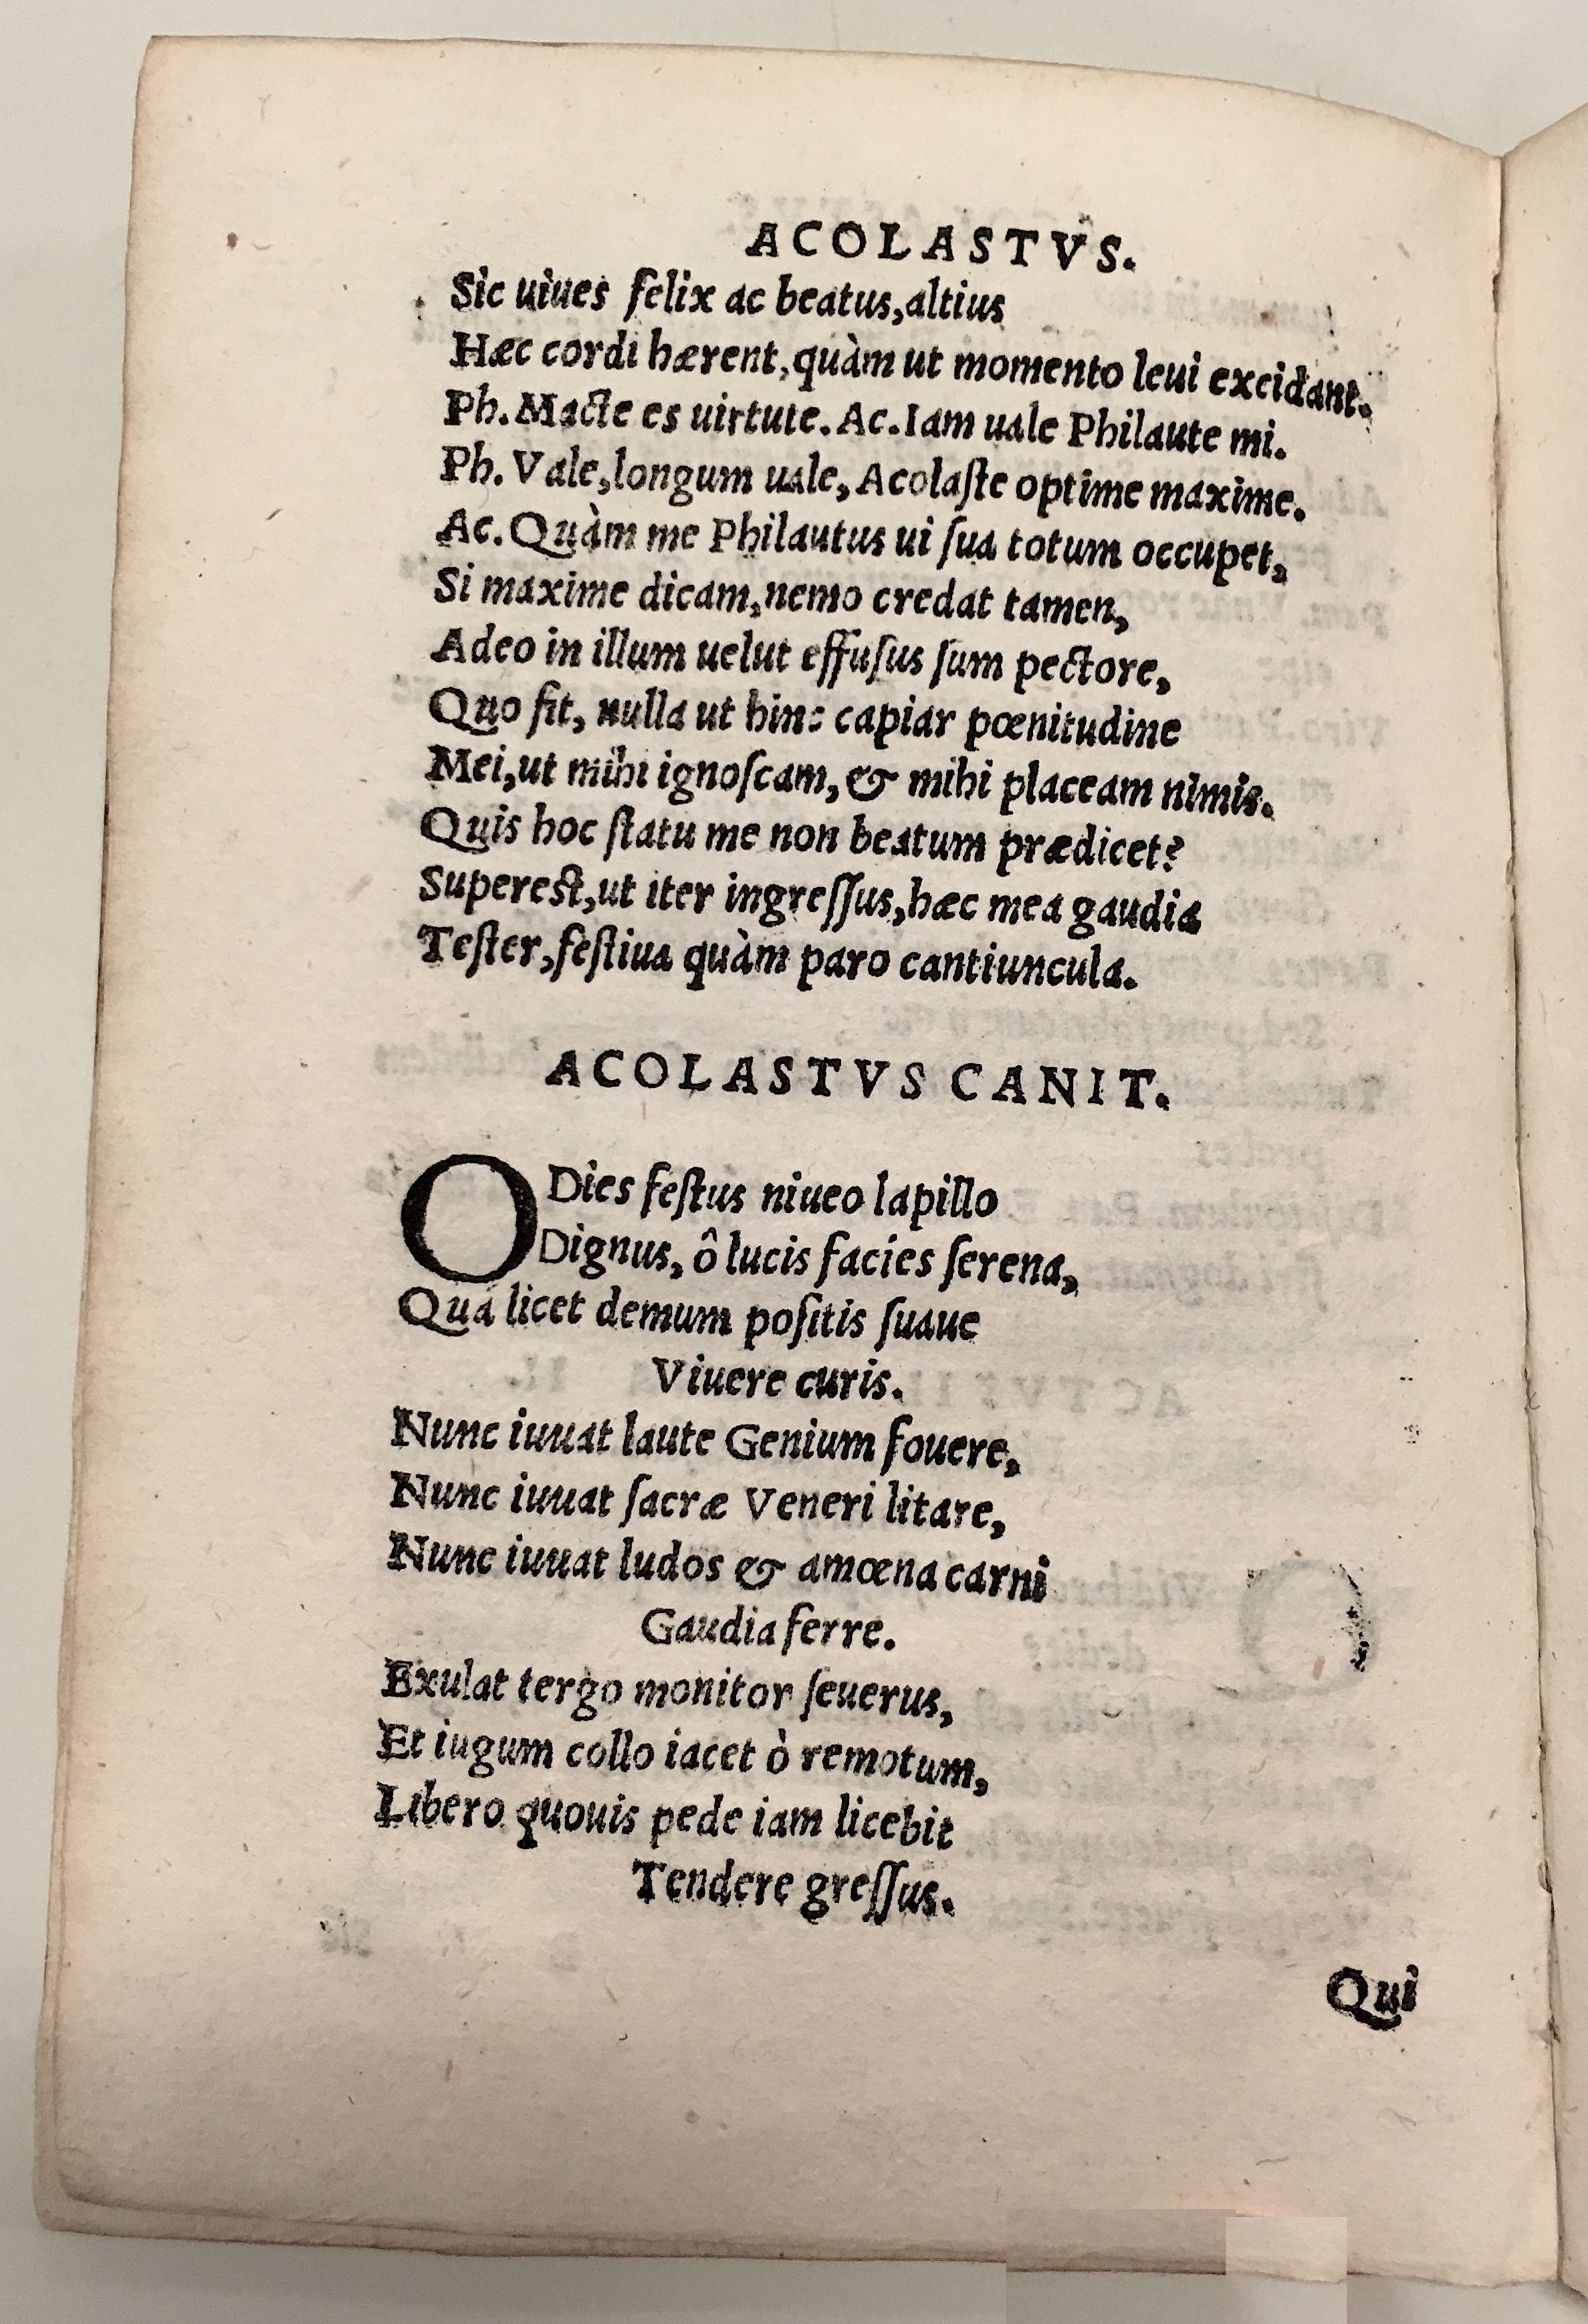 ACOLASTVS.
Sic uiues felix ac beatus, altius
Hæc cordi hærent, quàm ut momento leui excidant.
Ph. Macte es uirtute. Ac. Iam uale Philaute mi.
Ph. Vale, longum uale, Acolaſte optime maxime.
Ac. Quàm me Philautus ui ſua totum occupet,
Si maxime dicam, nemo credat tamen,
Adeo in illum uelut effuſus ſum pectore,
Quo fit, nulla ut hinc capiar pœnitudine
Mei, ut mihi ignoſcam, & mihi placeam nimis.
Quis hoc ſtatu me non beatum prædicet?
Supereſt, ut iter ingreſſus, hæc mea gaudia
Teſter, feſtiua quàm paro cantiuncula.
ACOLASTVS CANIT.
O Dies feſtus niueo lapillo
Dignus, ô lucis facies ſerena,
Qua licet demum poſitis ſuaue
Viuere curis.
Nunc iuuat laute Genium fouere,
Nunc iuuat ſacræ Veneri litare,
Nunc iuuat ludos & amœna carni
Gaudia ferre.
Exulat tergo monitor ſeuerus,
Et iugum collo iacet ò remotum,
Libero quouis pede iam licebit
Tendere greſſus.
Qui